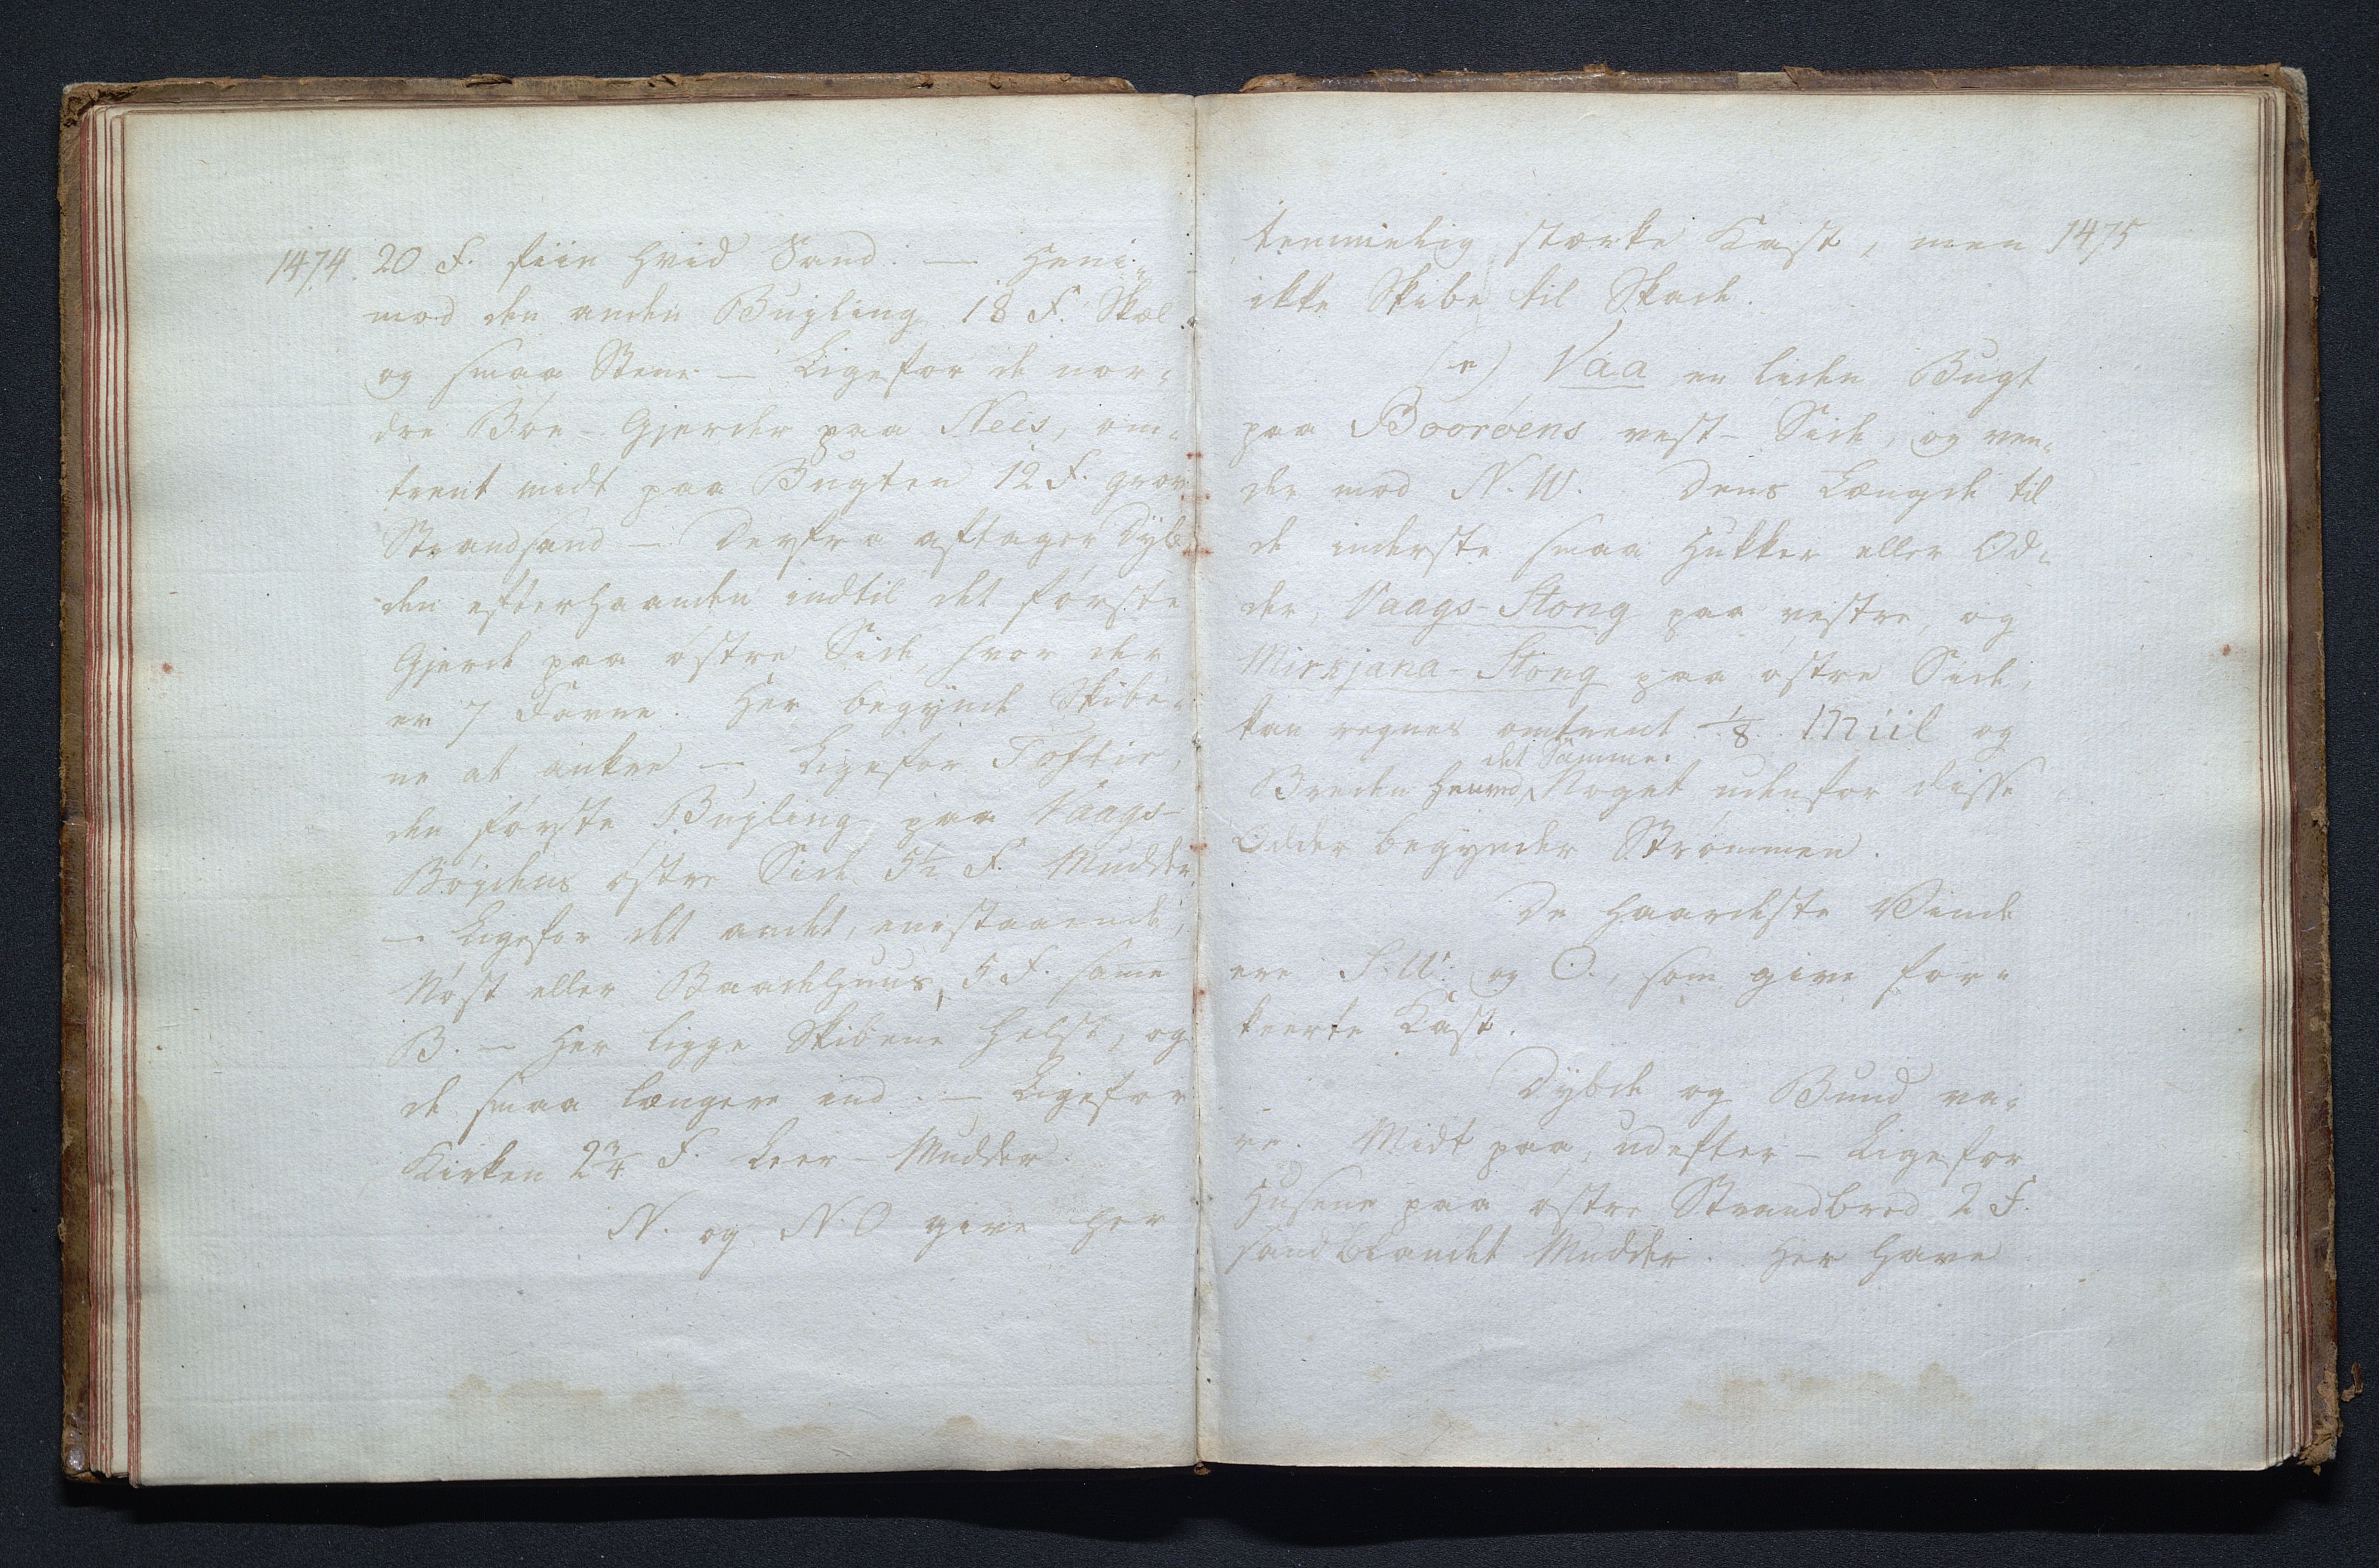 1474. 20 F. fiin hvid Sand. — Heni-
mod den anden Bugling 18 F. Skæl
og smaa Stene — Ligefor de nor-
dre Bøe-Gjerder paa Neis, om-
trent midt paa Bugten 12 F. grov
Strandsand — Derfra aftager Dyb-
den efterhaanden indtil det første
Gjerde paa østre Side, hvor der
er 7 Favne. Her begynde Skibe-
ne at ankre — Ligefor Toftir,
den første Bugling paa Vaags-
Bøgdens østre Side 5½ F. Mudder
— Ligefor det andet, enestaaende,
Nøst eller Baadehuus, 5 F. same
B. — Her ligge Skibene helst, og
de smaa længere ind. — Ligefor
Kirken 2¾ F. Leer-Mudder.
N. og NO give her
temmelig stærke Kast, men 1475
ikke Skibe til Skade.
e) Vaa en liden Bugt
paa Boorøens vest-Side, og ven-
der mod N.W. Dens Længde til
de inderste smaa Hukker eller Od-
der, Vaags-Stong paa vestre, og
Mirkjana-Stong paa østre Side,
kan regnes omtrent 1/8 Miil og
det Samme.
Breden henved Noget udenfor disse
Odder begynder Strømmen.
De haardeste Vinde
ere S.W. og O., som give for-
keerte Kast.
Dybde og Bund va-
re. Midt paa, udefter — Ligefor
Husene paa østre Strandbred 2 F.
sandblandet Mudder. Her have